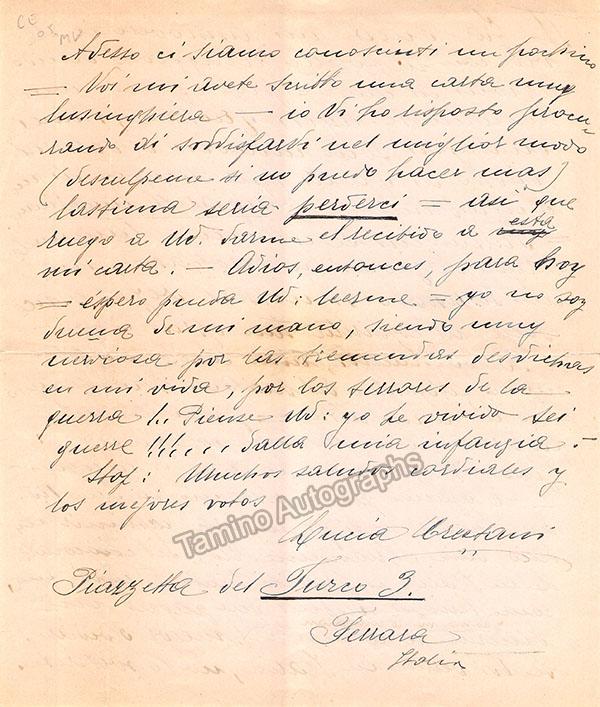 CE
05 MV
Adesso ci siamo conosciuti un pochino
= Voi mi avete scritto una carta muy
lusinghiera — io Vi ho risposto procu-
rando di soddisfarvi nel miglior modo
(desculpeme si no puedo hacer mas)
lastima seria perderci = asi que
ruego a Ud. darme el recibido a esta
mi carta. — Adios, entonces, para hoy
= espero pueda Ud: leerme = yo no soy
duena de mi mano, siendo muy
nerviosa por las tremendas desdichas
en mi vida, por los terrores de la
guerra !.. Piense Ud: yo he vivido sei
guerre !!!,... dalla mia infanzia. —
Stop: Muchos saludos cordiales y
los mejores votos
Lucia Crestani
Piazzetta del Turco 3.
Ferrara
Italia
Tamino Autographs